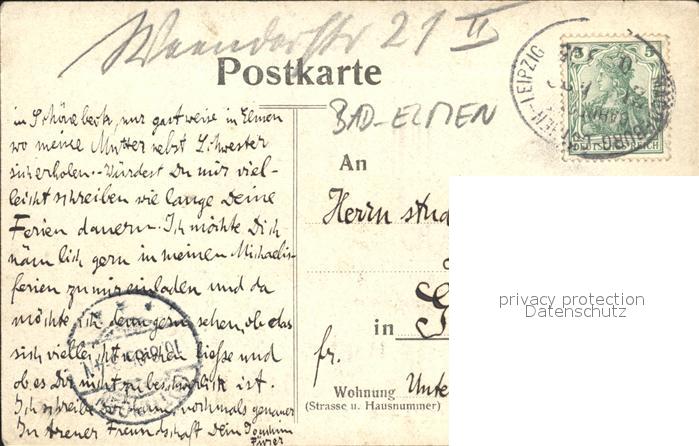 Wernerstr 21 II
Postkarte
BAD-ELMEN
in Schönebeck, nur gastweise in Elmen
wo meine Mutter nebst Schwester
sich erholen. Würdest Du mir viel-
leicht schreiben wie lange Deine
Ferien dauern. Ich möchte Dich
nämlich gern in meinen Michaelis-
ferien zu mir einladen und da
möchte ich denn gern sehen, ob das
sich vielleicht machen ließe und
ob es Dir nicht zu beschwerlich ist.
Ich schreibe nochmals genauer
In treuer Freundschaft Dein Joachim
An
Herrn stud
in G
fr.
Wohnung Unte
(Strasse u. Hausnummer)
LEIPZIG
5 5
DEUTSCHES REICH
privacy protection
Datenschutz